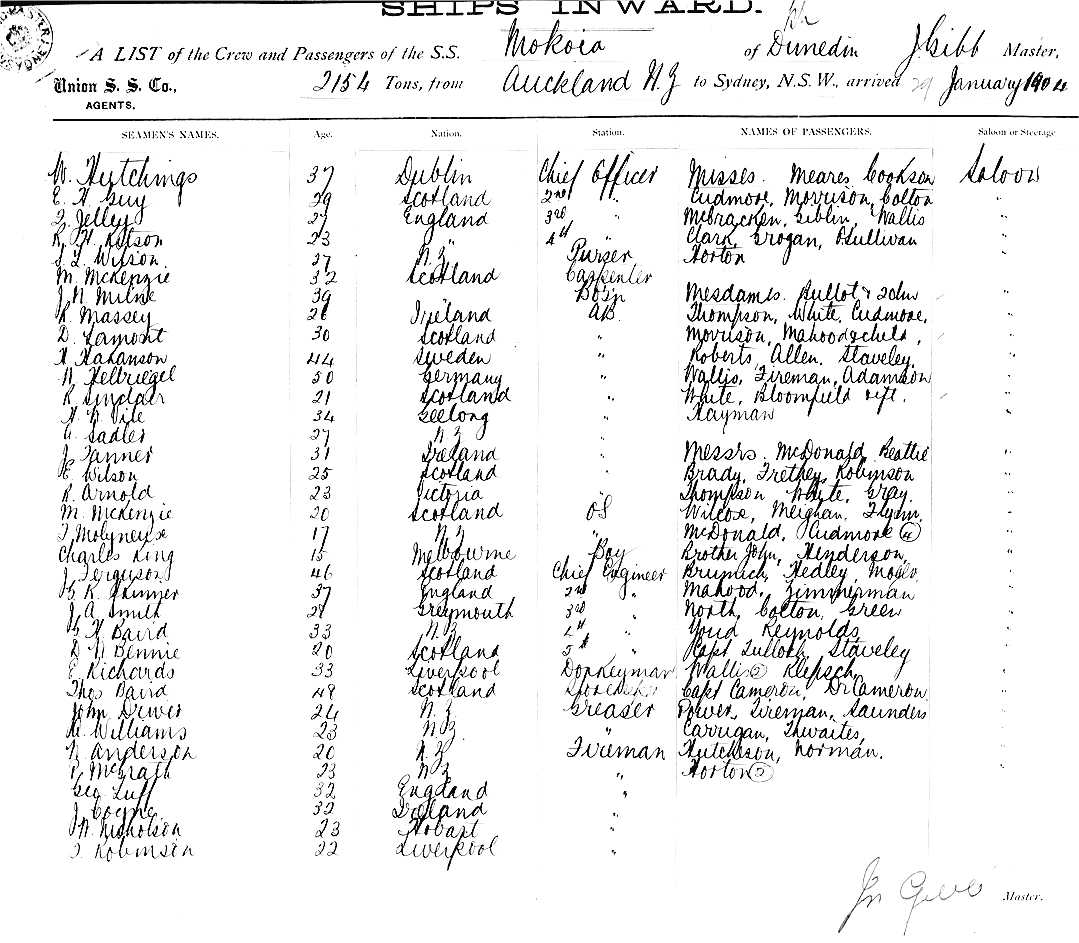 SHIPS INWARD.
A LIST of the Crew and Passengers of the S.S. Mokoia of Dunedin J. Gibb Master,
Union S. S. Co., AGENTS. 2154 Tons, from Auckland N Z to Sydney, N.S.W., arrived 29 January 1904
SEAMEN'S NAMES. Age. Nation. Station. NAMES OF PASSENGERS. Saloon or Steerage
W. Hutchings 37 Dublin Chief Officer Misses. Meares Cookson Saloon
E. A Guy 29 Scotland 2nd " Cudmore, Morrison, Colton "
Jelley 27 England 3rd " McCracken, Giblin, Wallis "
R. H. Kitson 23 " 4th " Clark, Grogan, OSullivan "
J L Wilson 27 N.Z Purser Horton "
M. McKenzie 32 Scotland Carpenter
J. N. Milne 39 " Bosn Mesdames. "
R Massey Ireland AB Thompson, White, Cudmore, "
D. Lamont 30 Scotland " Morrison, Mahood & child, "
Hakanson 44 Sweden " Roberts, Allen, Staveley "
Hellriegel 50 Germany " Wallis, Fireman, Adamson "
R Sinclair 21 Scotland " White, Bloomfield "
Vile 34 Geelong " Hayman "
Sadler 27 N Z "
J Tanner 31 Ireland " Messrs. McDonald, Beattie "
E. Wilson 25 Scotland " Brady, Trethey, Robinson "
R. Arnold 23 Victoria " Thompson White, Gray. "
M. McKenzie 20 Scotland OS Wilcox, Meighan, Flynn, "
Molyneux 17 N Z " McDonald, Cudmore (4) "
Charles King 15 Melbourne Boy Brother John, Henderson, "
J. Ferguson 46 Scotland Chief Engineer Hedley, "
R. Skinner 37 England 2nd " Mahood, Zimmerman "
J A Smith 28 Greymouth 3rd " North, Colton, Green "
Baird 33 N.Z 4th " Youd Reynolds "
Bennie 20 Scotland 5th " Capt Tulloch, Staveley "
E Richards 33 Liverpool Donkeyman Wallis (2) Klepsch "
Thos Baird 48 Scotland Storekeeper Capt Cameron, Dr Cameron "
John Dewer 24 N.Z Greaser Power, Fireman, Saunders "
Williams 23 N.Z " Carrigan, Thwaites, "
Anderson 20 N.Z Fireman Hutchison, Norman. "
McGrath 23 N Z " Horton (2) "
Geo Luff 32 England "
J Coyne 32 Ireland "
Nicholson 23 Hobart "
Robinson 22 Liverpool "
Jn Gibb Master.